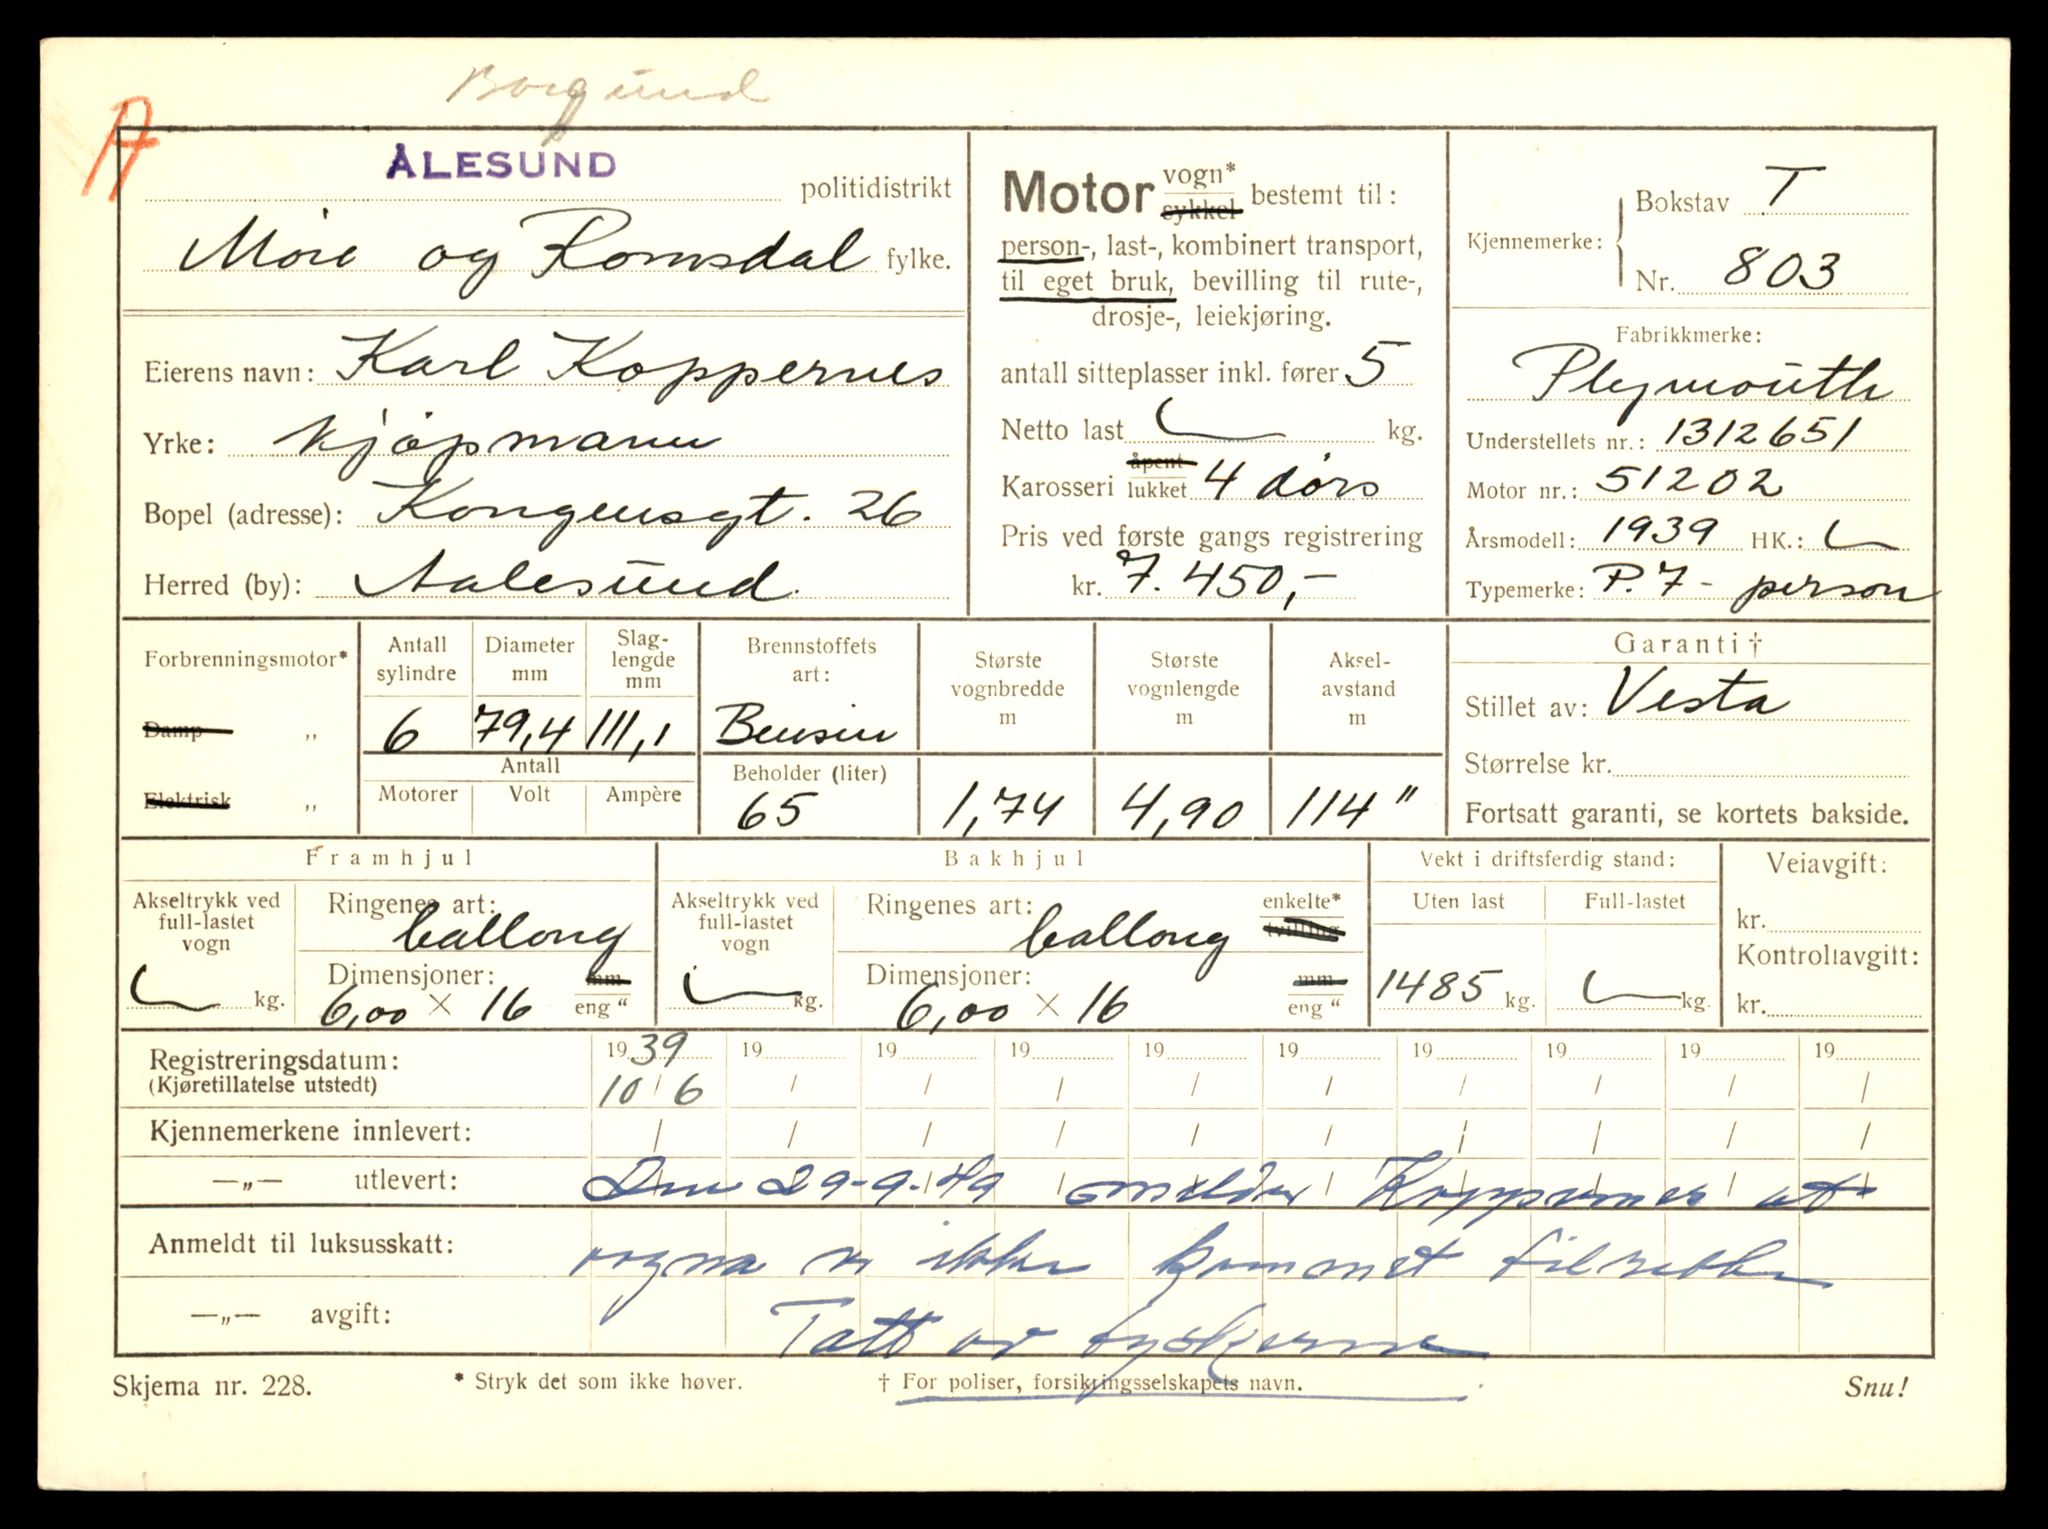 Borgund
A
ÅLESUND
politidistrikt
Møre og Romsdal fylke.
Eierens navn: Karl Koppernes
Yrke: kjøpmann
Bopel (adresse): Kongensgt. 26
Herred (by): Aalesund.
Motor vogn* sykkel bestemt til:
person-, last-, kombinert transport,
til eget bruk, bevilling til rute-,
drosje-, leiekjøring.
antall sitteplasser inkl. fører 5
Netto last kg.
Karosseri åpent lukket 4 dørs
Pris ved første gangs registrering
kr. 7.450,-
Kjennemerke: Bokstav T
Nr. 803
Fabrikkmerke:
Plymouth
Understellets nr.: 1312651
Motor nr.: 51202
Årsmodell: 1939 HK.:
Typemerke: P.7 - person
Forbrenningsmotor*
Damp "
Elektrisk "
Antall sylindre
6
Diameter mm
79,4
Slag-
lengde
mm
111,1
Antall
Motorer Volt Ampère
Brennstoffets
art:
Bensin
Beholder (liter)
65
Største
vognbredde
m
1,74
Største
vognlengde
m
4,90
Aksel-
avstand
m
114"
Garanti †
Stillet av: Vesta
Størrelse kr.
Fortsatt garanti, se kortets bakside.
Framhjul
Akseltrykk ved
full-lastet
vogn
kg.
Ringenes art:
ballong
Dimensjoner: mm
6,00 × 16 eng "
Bakhjul
Akseltrykk ved
full-lastet
vogn
kg.
Ringenes art: enkelte*
ballong tvilling
Dimensjoner: mm
6,00 × 16 eng "
Vekt i driftsferdig stand:
Uten last Full-lastet
1485 kg. kg.
Veiavgift:
kr.
Kontrollavgift:
kr.
Registreringsdatum: 1939 19 19 19 19 19 19 19 19 19
(Kjøretillatelse utstedt) 10/6 / / / / / / / / /
Kjennemerkene innlevert: / / / / / / / / / /
—„— utlevert: Den 29-9-49 melder Koppernes at
Anmeldt til luksusskatt: vogna er ikke kommet tilrette
—„— avgift: Tatt av tyskerne
Skjema nr. 228. * Stryk det som ikke høver. † For poliser, forsikringsselskapets navn. Snu!